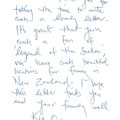 today the time to write
such a lovely letter.
It's great that you're
such a fan of
Legend of the Seeker.
We have such beautiful
locations for filming in
New Zealand. I hope
this letter finds you
and your family well